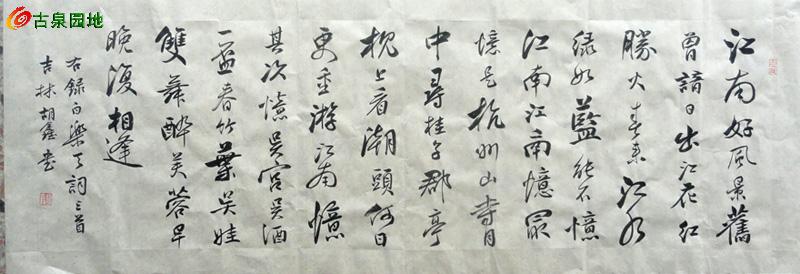 古泉园地
江南好風景舊
曾諳日出江花红
勝火春来江水
绿如藍能不憶
江南江南憶最
憶是杭州山寺月
中尋桂子郡亭
枕上看潮頭何日
更重游江南憶
其次憶吴宫吴酒
一盃春竹葉吴娃
雙舞醉芙蓉早
晚復相逢
右録白樂天詞三首
吉林胡鑫書